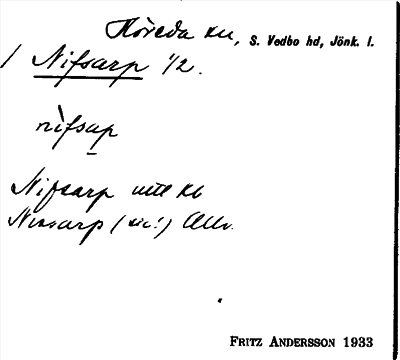 Höreda sn, S. Vedbo hd, Jönk. l.
/ Nifsarp 1/2.
nìfsap
Nifsarp uttl kb
Nissarp (sic!) Allv.
FRITZ ANDERSSON 1933